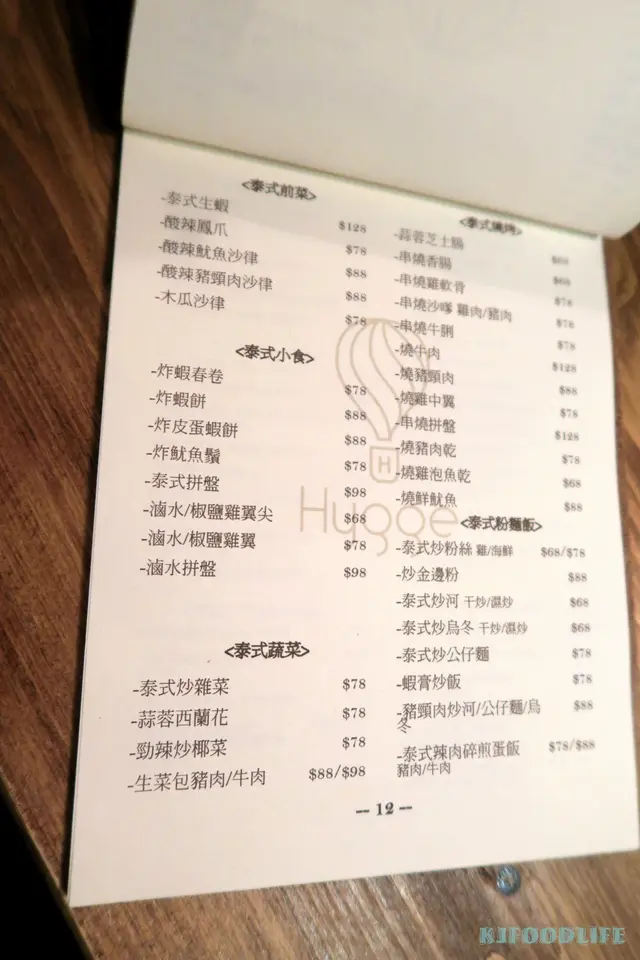 <泰式前菜>
-泰式生蝦 $128
-酸辣鳳爪 $78
-酸辣魷魚沙律 $88
-酸辣豬頸肉沙律 $88
-木瓜沙律 $78
<泰式小食>
-炸蝦春卷 $78
-炸蝦餅 $88
-炸皮蛋蝦餅 $88
-炸魷魚鬚 $78
-泰式拼盤 $98
-滷水/椒鹽雞翼尖 $68
-滷水/椒鹽雞翼 $78
-滷水拼盤 $98
<泰式蔬菜>
-泰式炒雜菜 $78
-蒜蓉西蘭花 $78
-勁辣炒椰菜 $78
-生菜包豬肉/牛肉 $88/$98
<泰式燒烤>
-蒜蓉芝士腸 $68
-串燒香腸 $68
-串燒雞軟骨 $78
-串燒沙嗲 雞肉/豬肉 $78
-串燒牛脷 $78
-燒牛肉 $128
-燒豬頸肉 $88
-燒雞中翼 $78
-串燒拼盤 $128
-燒豬肉乾 $78
-燒雞泡魚乾 $68
-燒鮮魷魚 $88
<泰式粉麵飯>
-泰式炒粉絲 雞/海鮮 $68/$78
-炒金邊粉 $88
-泰式炒河 干炒/濕炒 $68
-泰式炒烏冬 干炒/濕炒 $68
-泰式炒公仔麵 $78
-蝦膏炒飯 $78
-豬頸肉炒河/公仔麵/烏 $88
冬
-泰式辣肉碎煎蛋飯 $78/$88
豬肉/牛肉
H
Hygge
-- 12 --
KJFOODLIFE